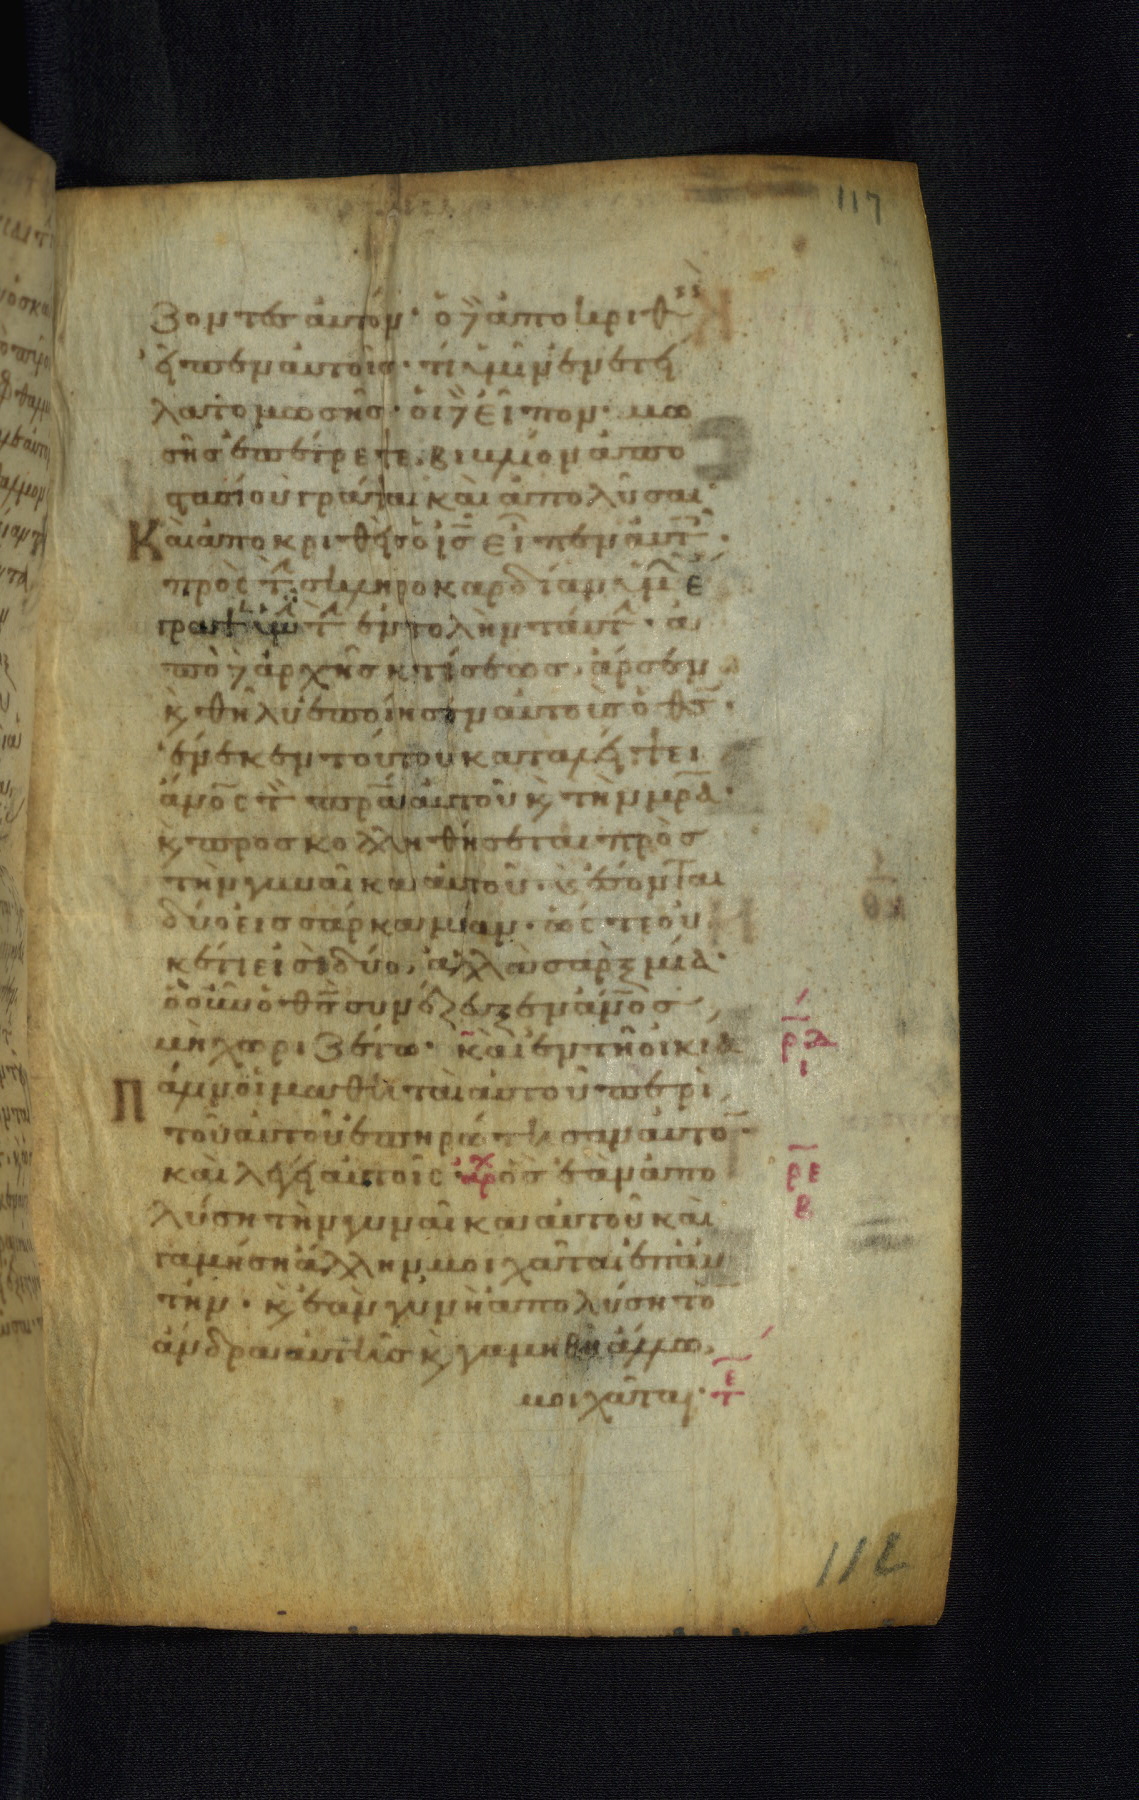 117
ζοντες αυτόν· ὁ δὲ ἀποκριθεὶς
εἶπεν αὐτοῖς· τί ὑμῖν ἐνετεί
λατο μωσῆς· οἱ δὲ εἶπον· μω
σῆς ἐπέτρεπε βιβλίον ἀπο
στασίου γράψαι καὶ ἀπολῦσαι·
Καὶ ἀποκριθεὶς ὁ ι̅ς̅ εἶπεν αὐτ·
πρὸς τ σκληροκαρδίαν ὑμ ἔ
γραψεν ὑμ τ ἐντολὴν ταύτ· ἀ
πὸ δὲ ἀρχῆς κτίσεως· ἄρσεν
κ̀ θῆλυ ἐποίησεν αὐτοὺς ὁ θ̅ς̅·
ἕνεκεν τούτου καταλείψει
ἀν̅ο̅ς τ π̅ρ̅α̅ αὐτοῦ κ̀ τὴν μ̅ρ̅α̅·
κ̀ προσκολληθήσεται πρὸς
τὴν γυναῖκα αὐτοῦ· κ̀ ἔσονται
δύο εἰς σάρκα μίαν· ὥστε οὐ
κέτι εἰσὶ δύο, ἀλλὰ σὰρξ μία·
ὃ οὖν ὁ θ̅ς̅ συνέζευξεν ἀν̅ο̅ς
μὴ χωριζέτω· καὶ ἐν τῆ οἰκία ρδ ι
Πάλιν οἱ μαθηταὶ αὐτοῦ περὶ
τοῦ αὐτοῦ ἐπηρώτησαν αὐτὸ·
καὶ λέγει αὐτοῖς· ὃς ἐὰν ἀπο ρε β
λύση τὴν γυναῖκα αὐτοῦ καὶ
γαμήση ἄλλην μοιχᾶται ἐπ᾽ αὐ
τήν· κ̀ ἐὰν γυνὴ ἀπολύση τὸ
ἄνδρα αὐτῆς κ̀ γαμηθῆ ἄλλω
μοιχᾶται· τε
112